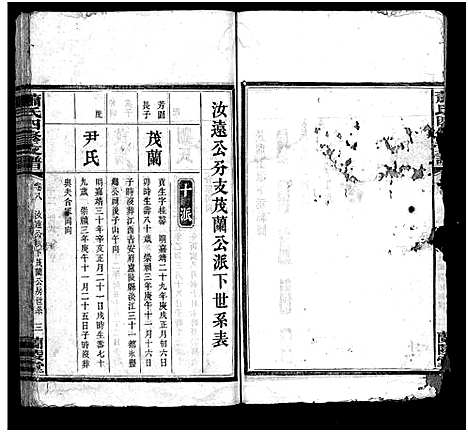 汝遠公分支茂蘭公派下世系表
十派
芳園
長子
茂蘭
貢生字桂馨 明嘉靖二十九年庚戌正月初六日
卯時生壽八十歲 崇禎三年庚午十一月十六日
子時沒葬江西吉安府廬陵縣淡江三十一都
公後子山午向
尹氏
明嘉靖三十年辛亥正月二十一日戌時生壽七十
九歲 崇禎三年庚午十一月二十五日子時沒葬
與夫合冢同向
蕭氏四修支譜
卷八 汝遠公派下茂蘭公房世系 三
蘭陵堂